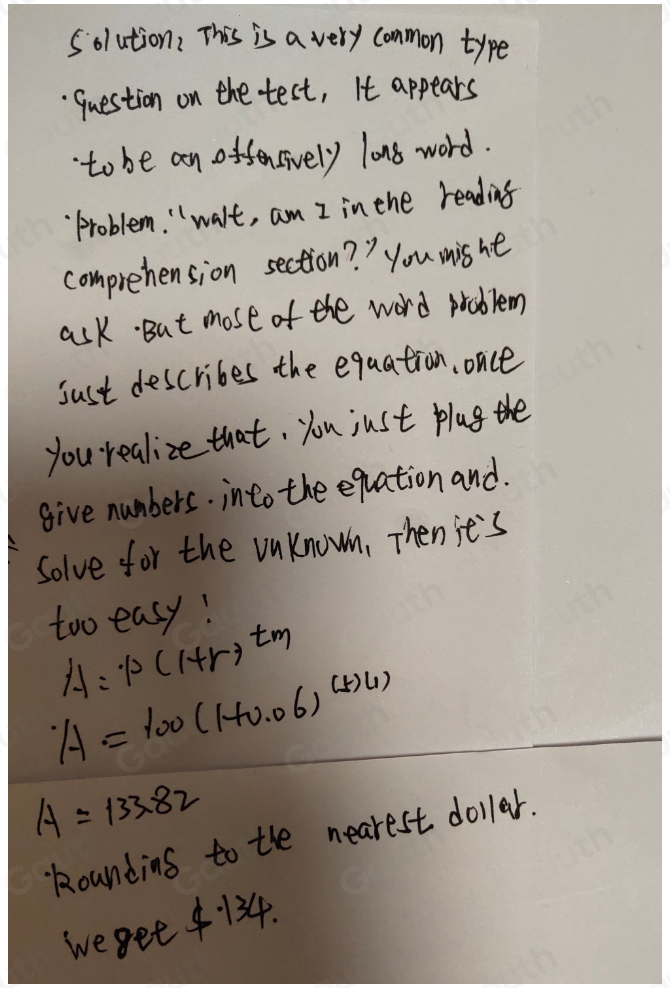 Solution: This is a very common type
question on the test, It appears
to be an offensively long word.
problem. "wait, am I in the reading
comprehension section?" You might
ask. But most of the word problem
just describes the equation, once
you realize that, You just plug the
give numbers. into the equation and.
solve for the unknown, Then it's
too easy!
A = P(1+r)^tm
A = 100(1+0.06)^(5)(1)
A = 133.82
Rounding to the nearest dollar.
we get $134.